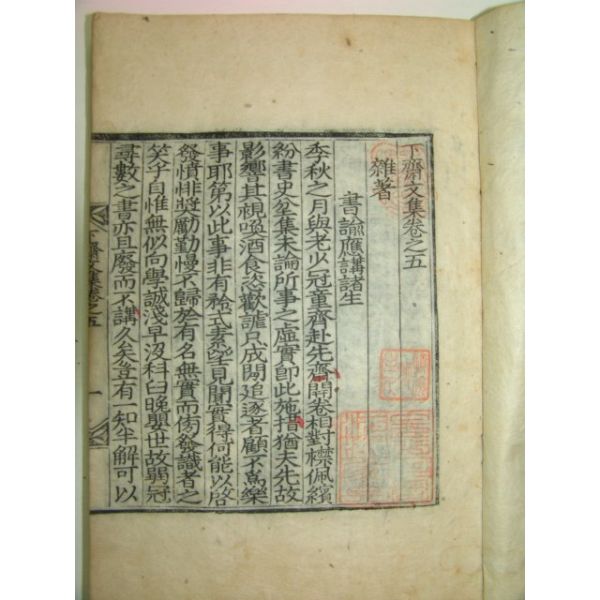 下齋文集卷之五
雜著
書諭應講諸生
季秋之月與老少冠童齊赴先齋開卷相對襟佩繽
紛書史坌集未論所事之虛實即此施措猶夫先故
影響其視喚酒食恣歡謔只成閙追逐者顧不爲樂
事耶第以此事非有袷式素望見聞實得何能以啓
發憤悱奬勵勤慢不歸於有名無實而傍發識者之
笑乎自惟無似向學誠淺早汲科臼晚嬰世故羇冠
尋數之書亦且廢而不講久矣豈有一知半解可以
下齋文集卷之五
一